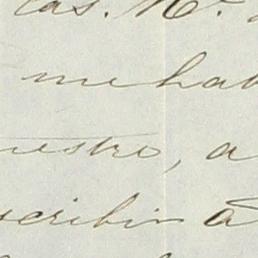 cas. No.
me hab
uestro, a
scribir á